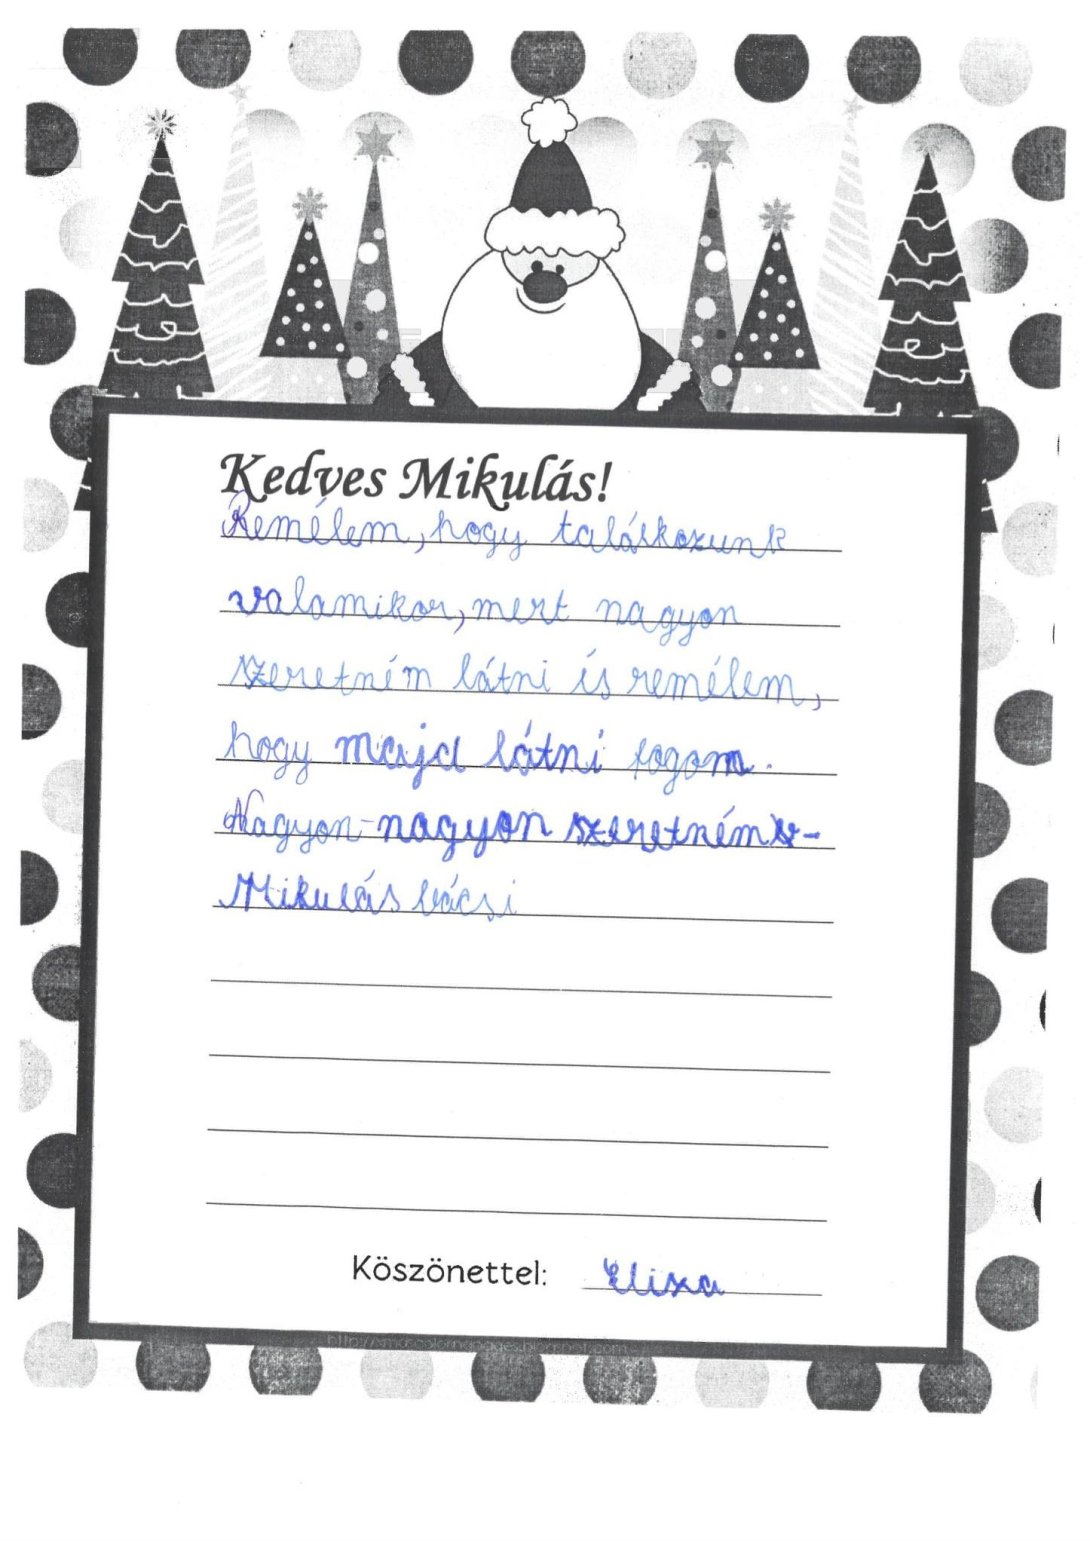 Kedves Mikulás!
Remélem, hogy találkozunk
valamikor, mert nagyon
szeretném látni és remélem,
hogy majd látni fogom.
Nagyon-nagyon szeretném
Mikulás bácsi
Köszönettel: Eliza